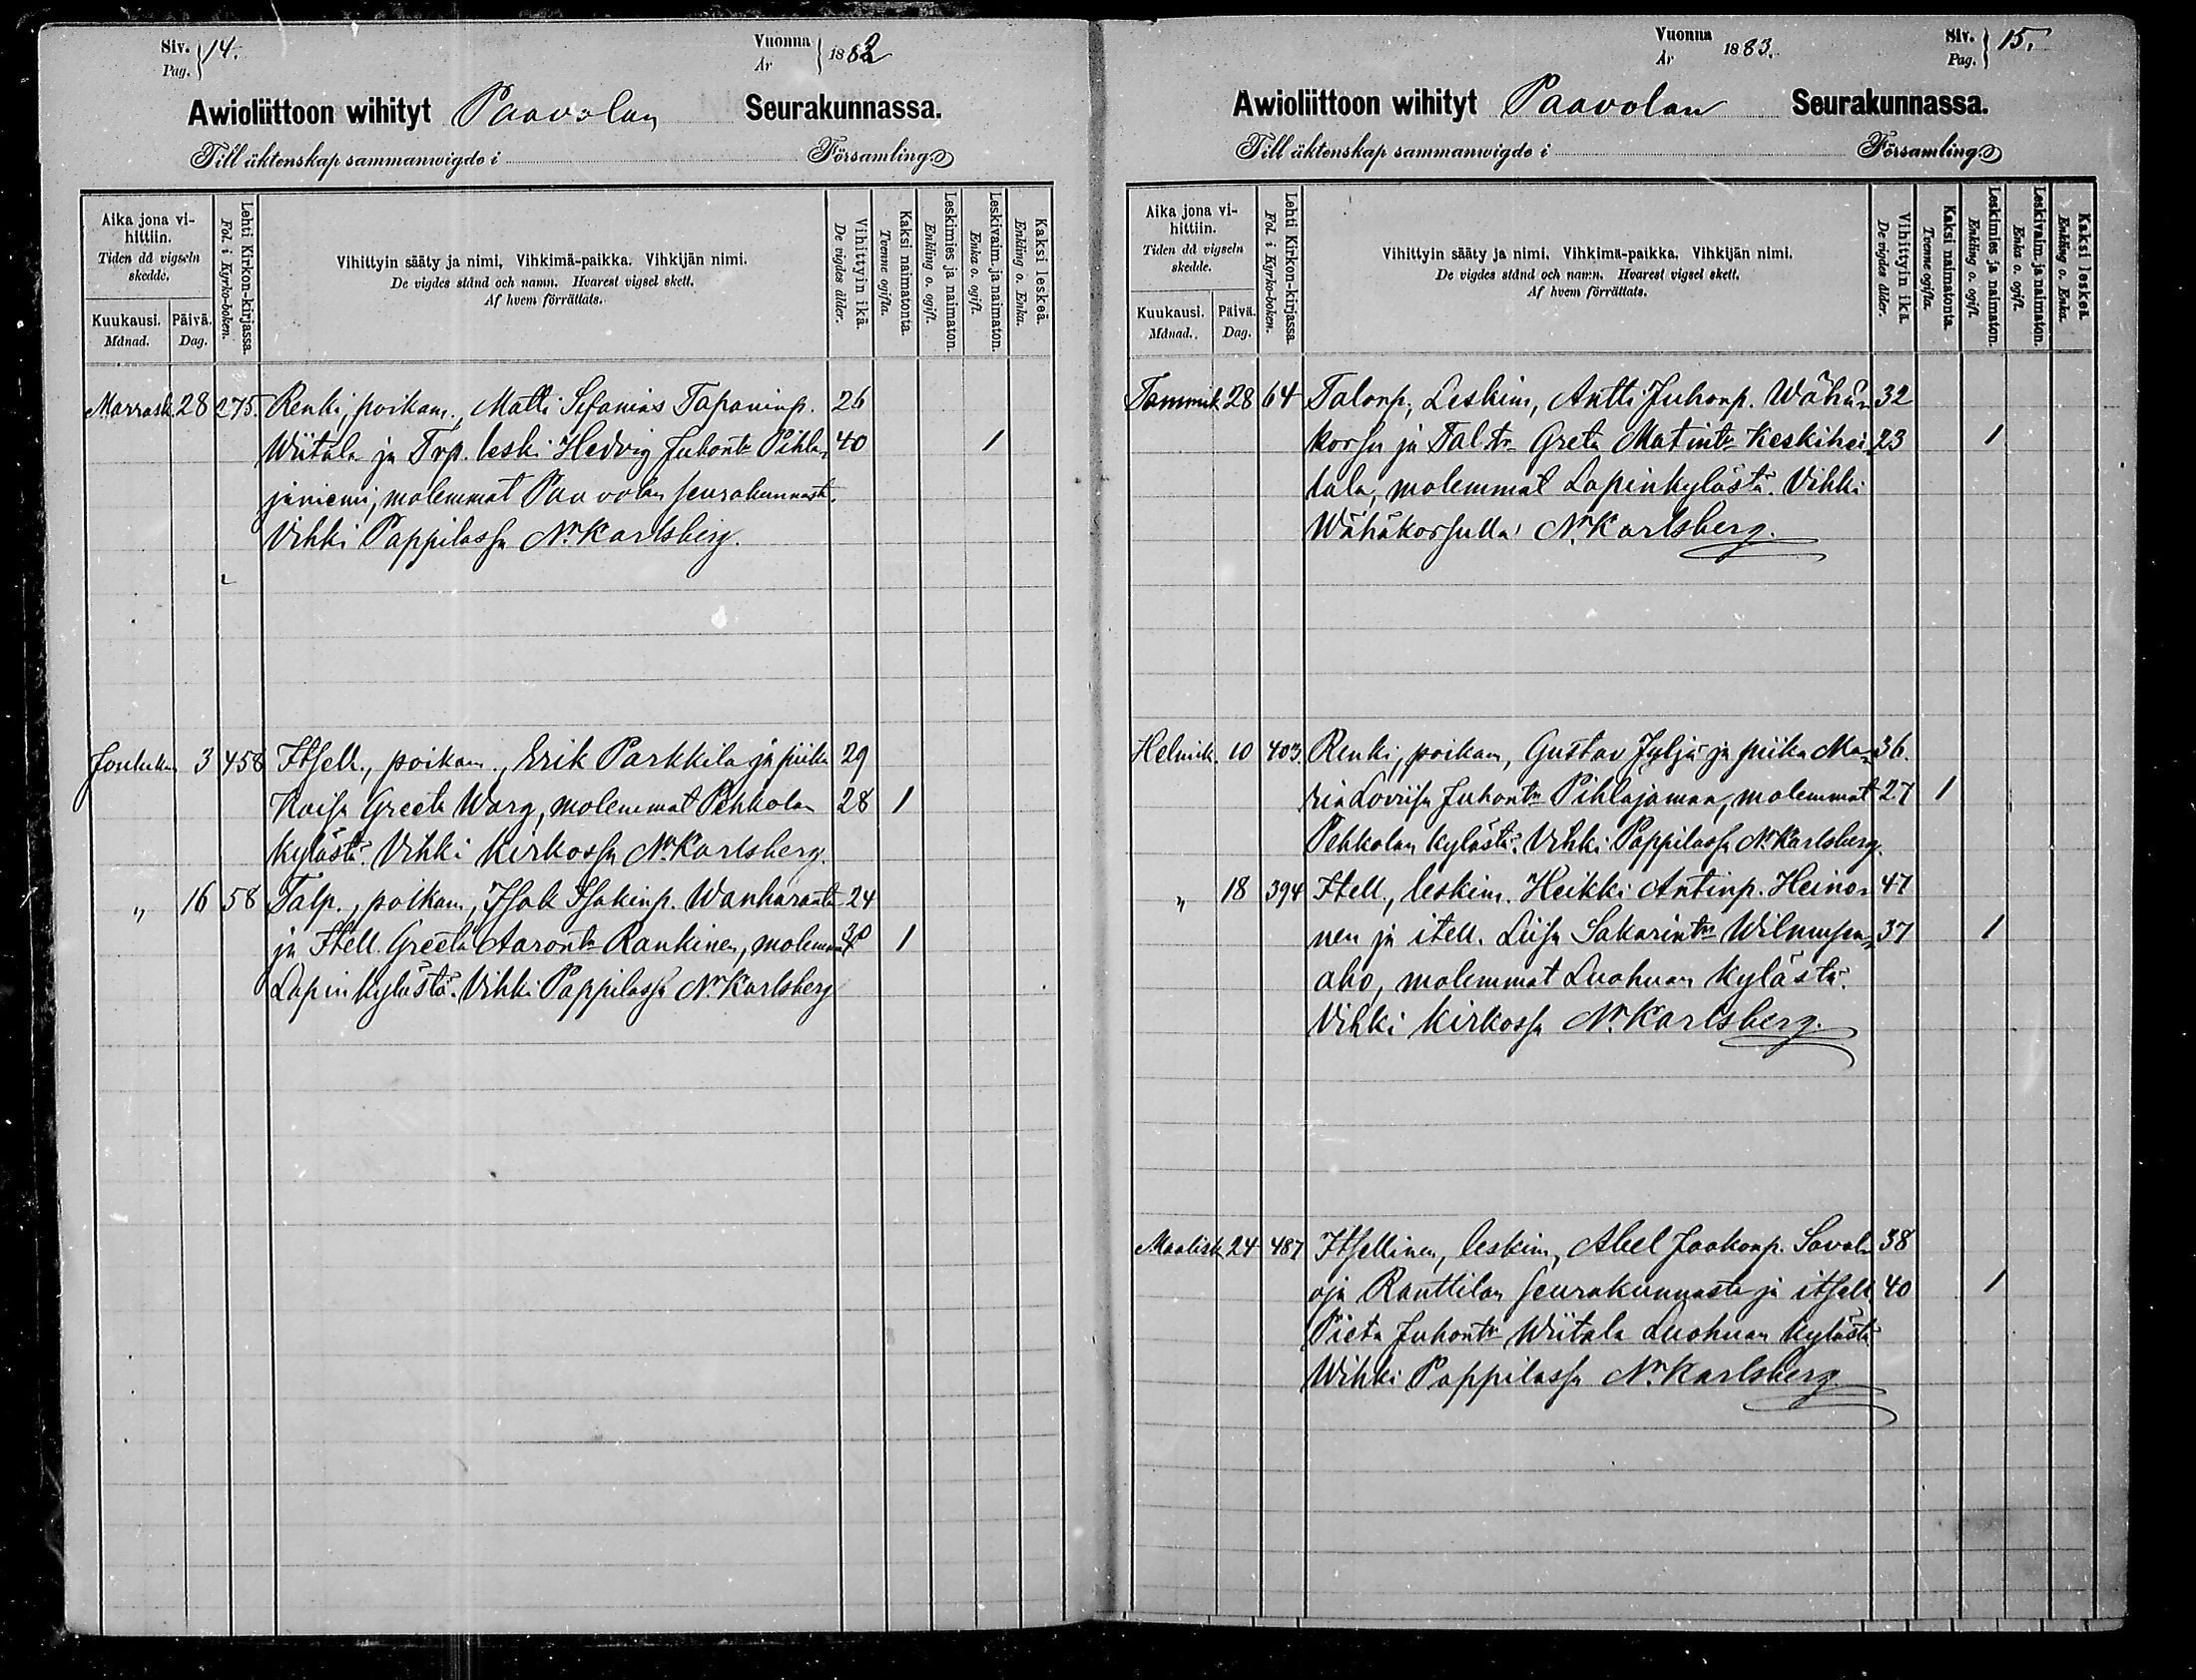 Siv. 14.
Pag.
Vuonna 1882
År
Awioliittoon wihityt Paavolan Seurakunnassa.
Till äktenskap sammanwigde i Församling.
Aika jona vi-
hittiin.
Tiden då vigseln
skedde.
Kuukausi.
Månad.
Päivä.
Dag.
Lehti Kirkon-kirjassa.
Fol. i Kyrko-boken.
Vihittyin sääty ja nimi, Vihkimä-paikka. Vihkijän nimi.
De vigdes stånd och namn. Hvarest vigsel skett.
Af hvem förrättats.
Vihittyin ikä.
De vigdes ålder.
Kaksi naimatonta.
Tvenne ogifta.
Leskimies ja naimaton.
Enkling o. ogift.
Leskivaim. ja naimaton.
Enka o. ogift.
Kaksi leskeä.
Enkling o. Enka.
Marrask. 28 275. Renki, poikam., Matti Sefanias Tapaninp. 26
Wiitala ja Trp. leski Hedvig Juhontr Pihla- 40 1
janiemi, molemmat Paavolan seurakunnasta.
Vihki Pappilassa N. Karlsberg.
Jouluku 3 458 Itsell., poikam., Erik Parkkila ja piika 29
Kaisa Greeta Warg, molemmat Pehkolan 28 1
kylästä. Vihki kirkossa N. Karlsberg.
" 16 58 Talp., poikam., Isak Isakinp. Wanharanta 24
ja Itell. Greeta Aarontr Rankinen, molemmat 30 1
Lapinkylästä. Vihki Pappilassa N. Karlsberg
Vuonna 1883.
År
Siv. 15.
Pag.
Awioliittoon wihityt Paavolan Seurakunnassa.
Till äktenskap sammanwigde i Församling.
Aika jona vi-
hittiin.
Tiden då vigseln
skedde.
Kuukausi.
Månad.
Päivä.
Dag.
Lehti Kirkon-kirjassa.
Fol. i Kyrko-boken.
Vihittyin sääty ja nimi. Vihkimä-paikka. Vihkijän nimi.
De vigdes stånd och namn. Hvarest vigsel skett.
Af hvem förrättats.
Vihittyin ikä.
De vigdes ålder.
Kaksi naimatonta.
Tvenne ogifta.
Leskimies ja naimaton.
Enkling o. ogift.
Leskivaim. ja naimaton.
Enka o. ogift.
Kaksi leskeä.
Enkling o. Enka.
Tammik. 28 64 Talonp., Leskim., Antti Juhonp. Wähä- 32
korsu ja Tal. tr Greta Matintr Keskihei- 23 1
tala, molemmat Lapinkylästä. Vihki
Wähäkorsulla N. Karlsberg.
Helmik. 10 403 Renki, poikam., Gustav Jyljä ja piika Ma- 36.
ria Loviisa Juhontr Pihlajamaa, molemmat 27 1
Pehkolan kylästä. Vihki Pappilassa N. Karlsberg.
" 18 394 Itell., leskim. Heikki Antinp. Heino- 47
nen ja itell. Liisa Sakarintr Wilmusen- 37 1
aho, molemmat Luohuan kylästä.
Vihki kirkossa N. Karlsberg.
Maalisk. 24 487 Itsellinen, leskim., Abel Jaakonp. Savola- 38
oja Ranttilan seurakunnasta ja itsell. 40 1
Pieta Juhontr Wiitala Luohuan kylästä
Wihki Pappilassa N. Karlsberg.